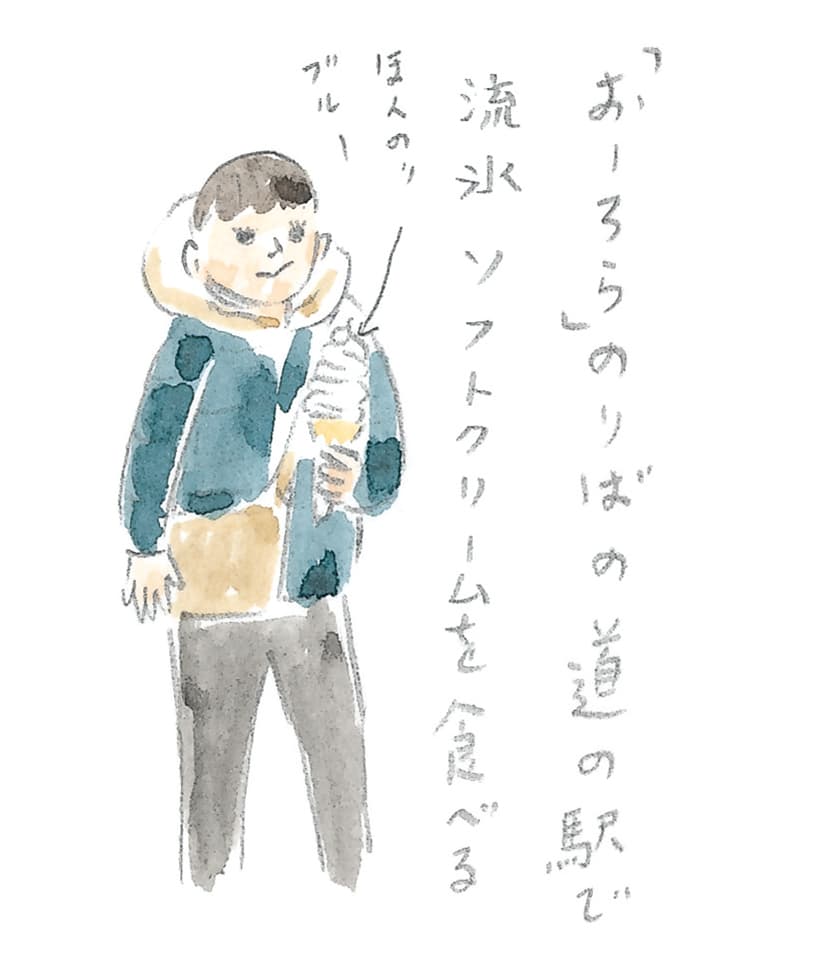 「おーろら」のりばの道の駅で
流氷ソフトクリームを食べる
ほんのり
ブルー